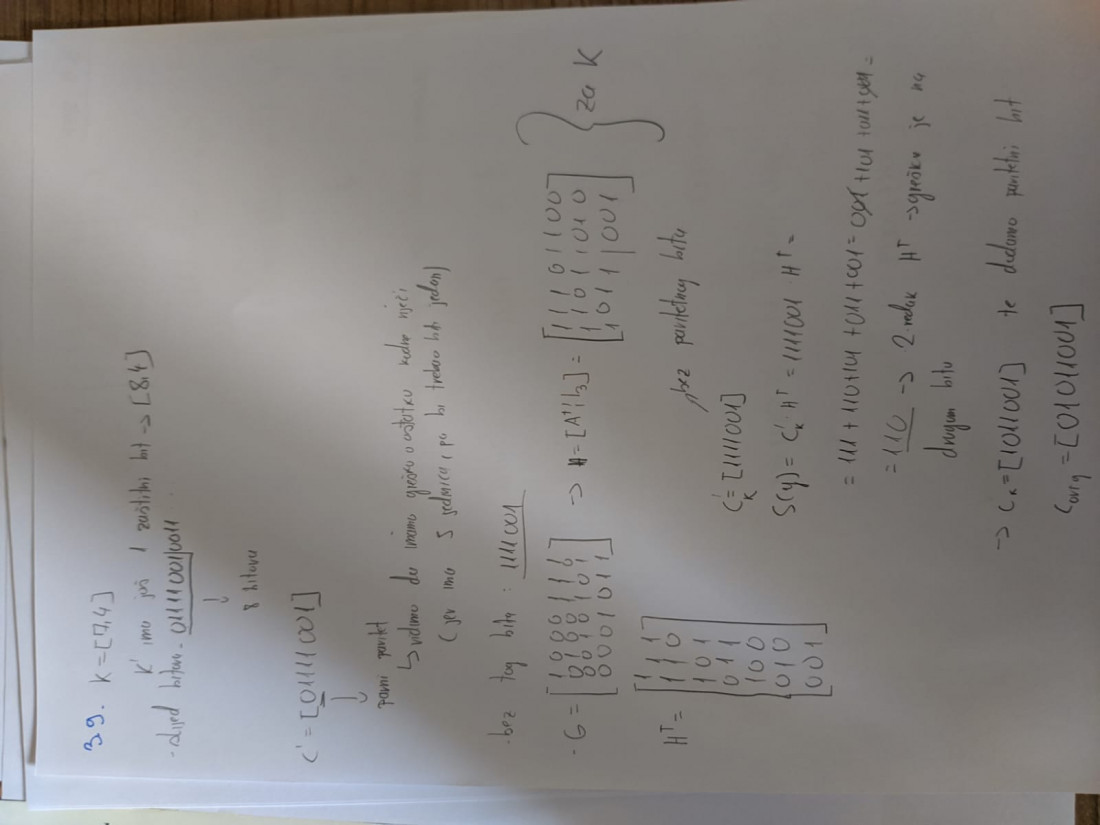 39. K=[7,4]
K' ima još 1 zaštitni bit → [8,4]
- slijed bitova - 011110010011...
↓
8 bitova
C' = [01111001]
↓
parni paritet
↳ vidimo da imamo grešku u ostatku kodne riječi
(jer ima 5 jedinica, pa bi trebao biti jedan)
- bez tog bita : 1111001
- G = [1 0 0 0 1 1 1
0 1 0 0 1 1 0
0 0 1 0 1 0 1
0 0 0 1 0 1 1] → H = [Aᵀ¦I₃] = [1 1 1 0 1 1 0 0
1 1 0 1 0 1 0
1 0 1 1 0 0 1] } za K
Hᵀ = [1 1 1
1 1 0
1 0 1
0 1 1
1 0 0
0 1 0
0 0 1]
bez paritetnog bita
C'K = [1111001]
S(y) = C'K · Hᵀ = 1111001 · Hᵀ =
= 111 + 110 + 101 + 011 + 001 = 001 + 101 + 011 + 001 =
= 110 → 2. redak Hᵀ → greška je na
drugom bitu
→ CK = [1011001] te dodamo paritetni bit
= [01011001]